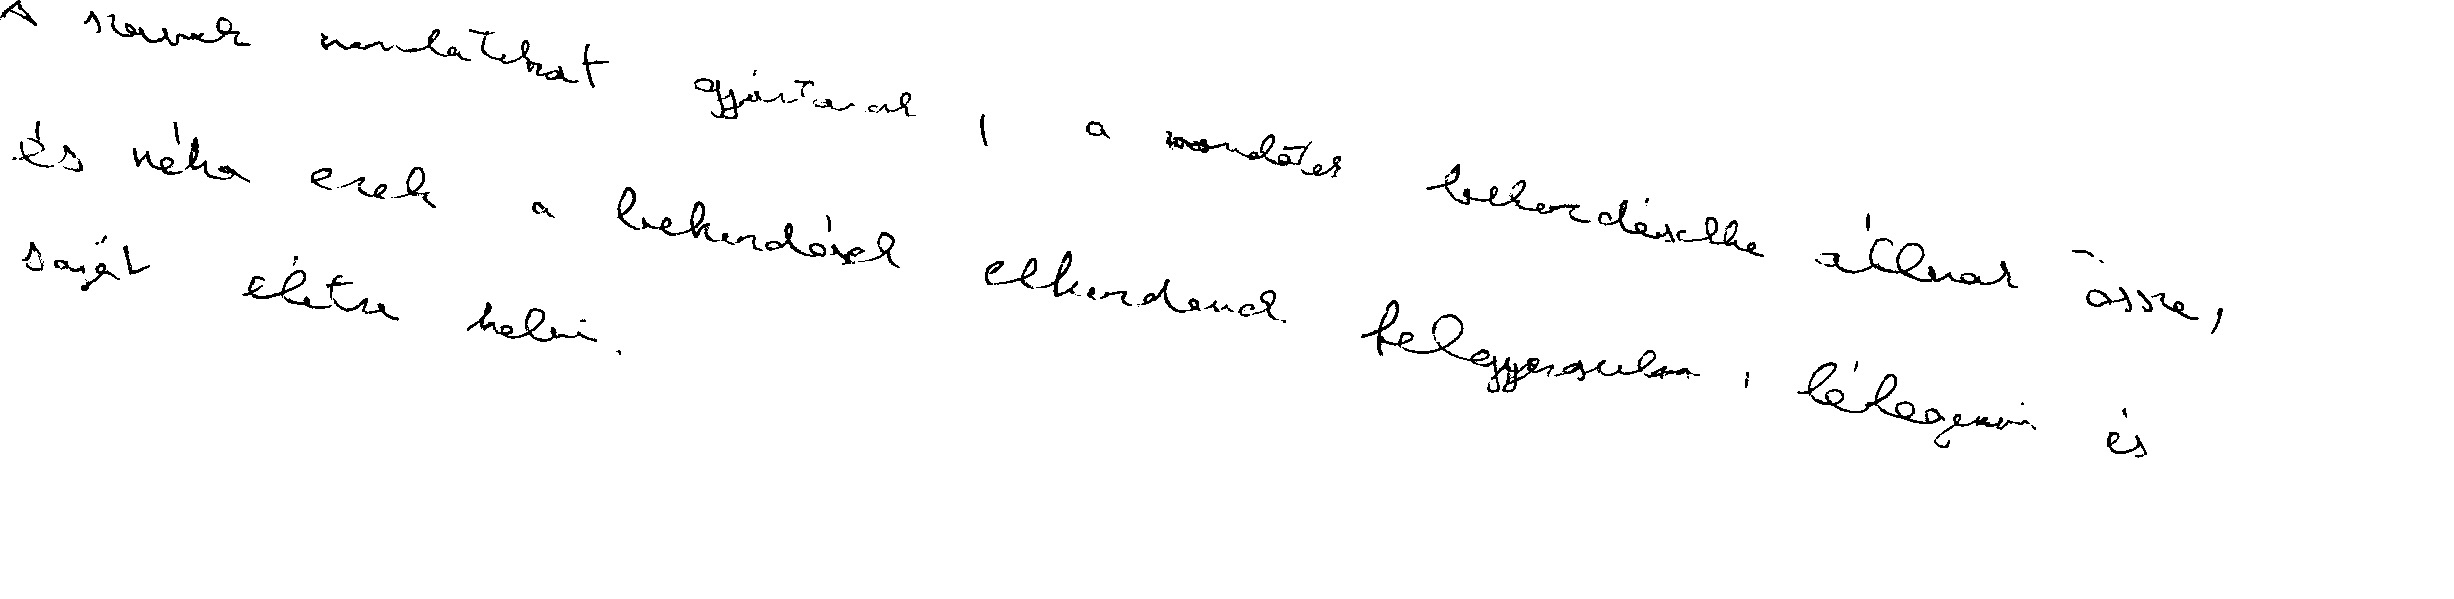 A szavak mondatokat gyártanak, a mondatok bekezdésekbe állnak össze,
és néha ezek a bekezdések elkezdenek felgyorsulni, lélegezni és
saját életre kelni.